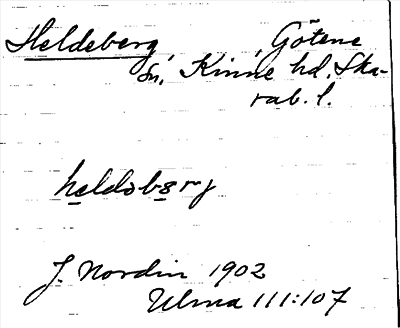 Heldeberg, Götene
sn, Kinne hd. Ska-
rab. l.
heldəbærj
J. Nordin 1902
Ulma 111:107